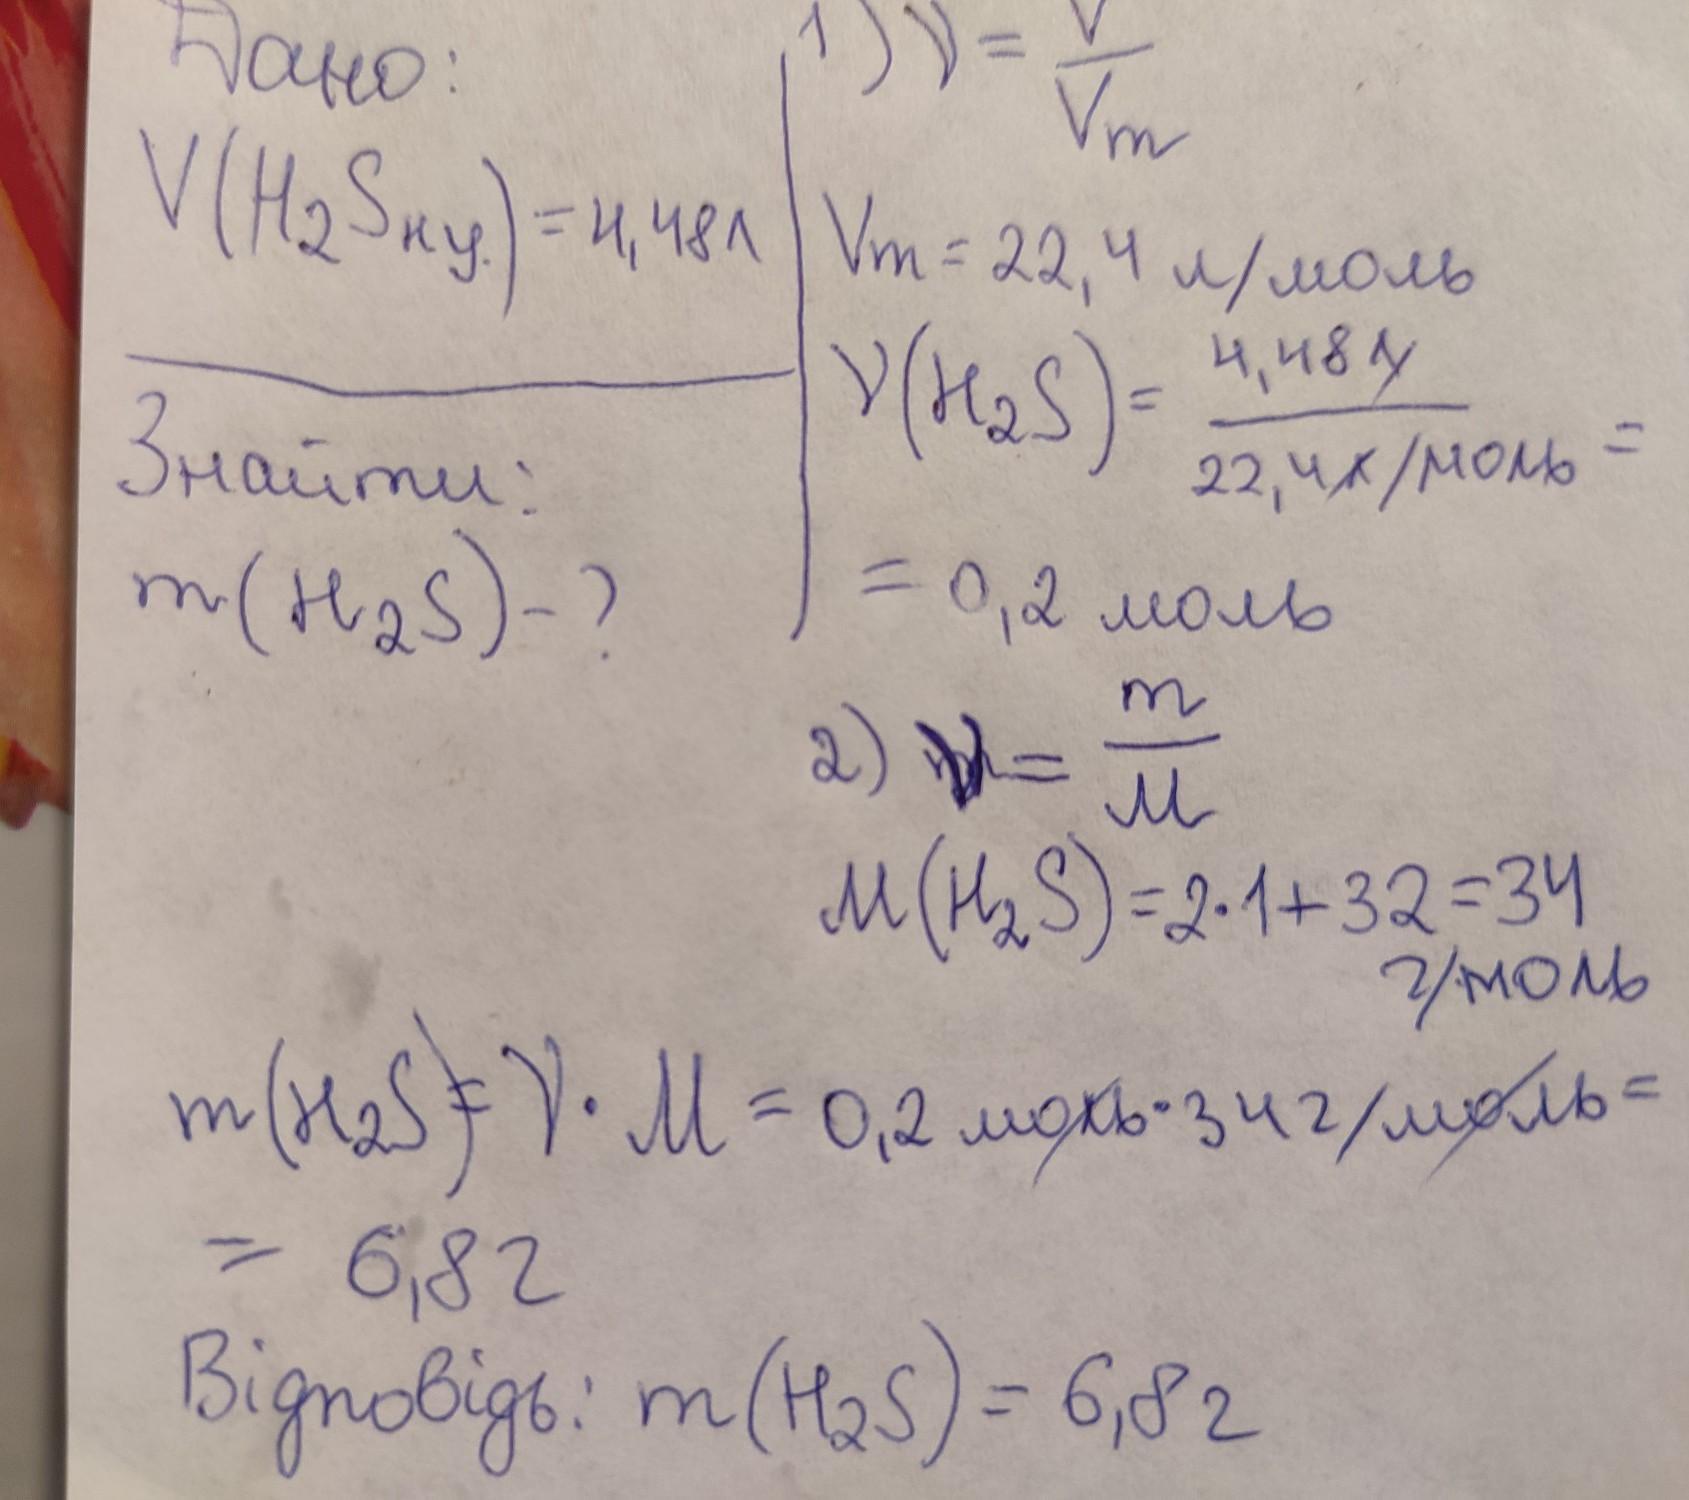 Дано:
V(H₂Sн.у.) = 4,48л
Знайти:
m(H₂S) - ?
1) ν = V/Vm
Vm = 22,4 л/моль
ν(H₂S) = 4,48л / 22,4л/моль =
= 0,2 моль
2) ν = m/M
M(H₂S) = 2·1+32=34
г/моль
m(H₂S) = ν · M = 0,2 моль · 34 г/моль =
= 6,8 г
Відповідь: m(H₂S) = 6,8 г